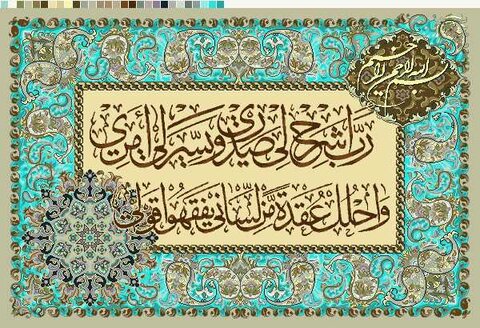 بسم الله الرحمن الرحیم
رَبِّ اشْرَحْ لِی صَدْرِی وَیَسِّرْ لِی أَمْرِی
وَاحْلُلْ عُقْدَةً مِّن لِّسَانِی یَفْقَهُوا قَوْلِی